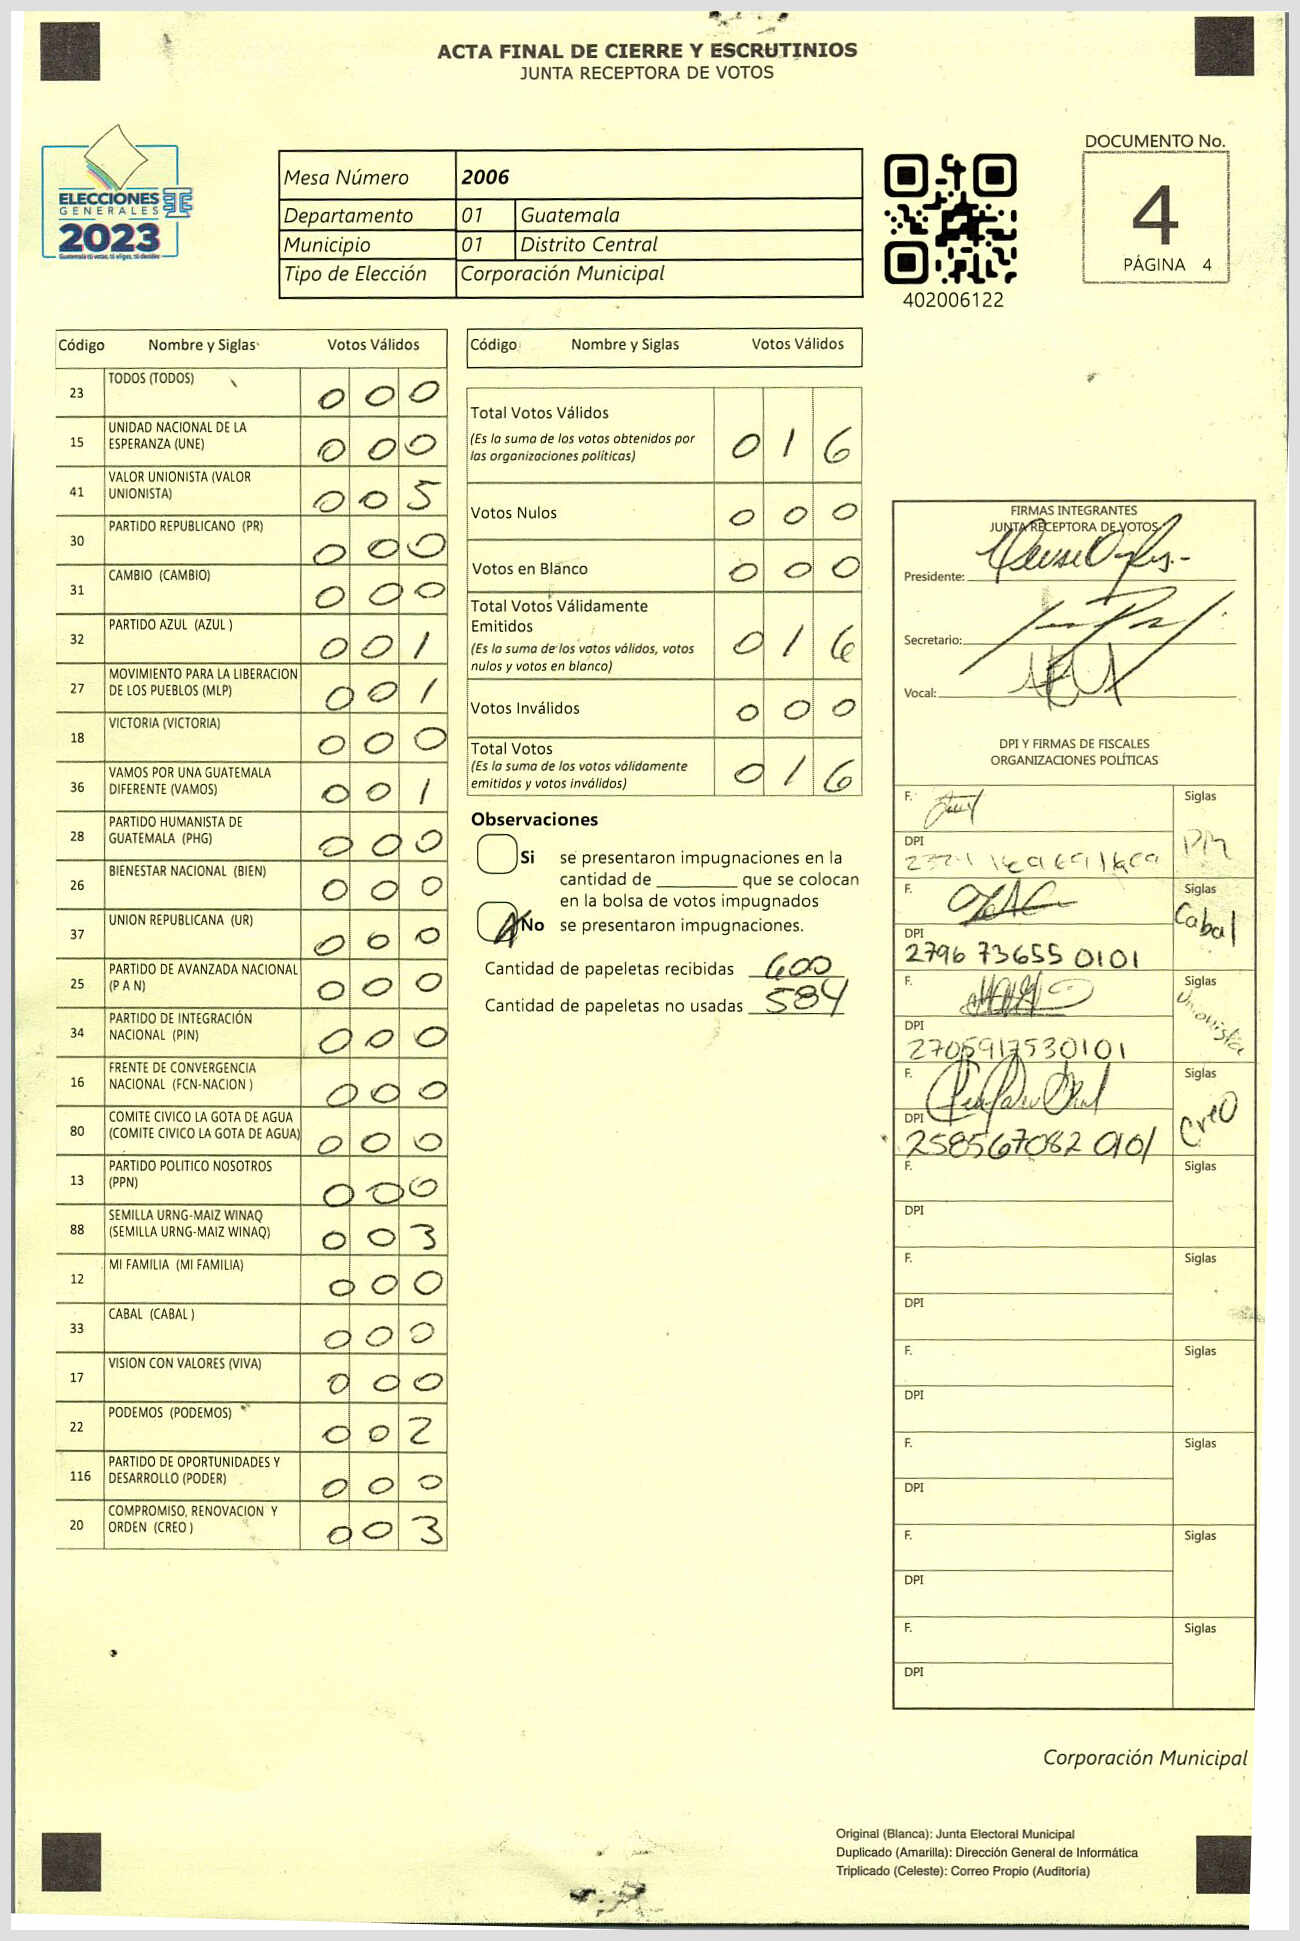 ACTA FINAL DE CIERRE Y ESCRUTINIOS
JUNTA RECEPTORA DE VOTOS
ELECCIONES
GENERALES
2023
Guatemala tú votas, tú eliges, tú decides
Mesa Número 2006
Departamento 01 Guatemala
Municipio 01 Distrito Central
Tipo de Elección Corporación Municipal
402006122
DOCUMENTO No.
4
PÁGINA 4
Código Nombre y Siglas Votos Válidos
23 TODOS (TODOS) 0 0 0
15 UNIDAD NACIONAL DE LA
ESPERANZA (UNE) 0 0 0
41 VALOR UNIONISTA (VALOR
UNIONISTA) 0 0 5
30 PARTIDO REPUBLICANO (PR) 0 0 0
31 CAMBIO (CAMBIO) 0 0 0
32 PARTIDO AZUL (AZUL ) 0 0 1
27 MOVIMIENTO PARA LA LIBERACION
DE LOS PUEBLOS (MLP) 0 0 1
18 VICTORIA (VICTORIA) 0 0 0
36 VAMOS POR UNA GUATEMALA
DIFERENTE (VAMOS) 0 0 1
28 PARTIDO HUMANISTA DE
GUATEMALA (PHG) 0 0 0
26 BIENESTAR NACIONAL (BIEN) 0 0 0
37 UNION REPUBLICANA (UR) 0 0 0
25 PARTIDO DE AVANZADA NACIONAL
(P A N) 0 0 0
34 PARTIDO DE INTEGRACIÓN
NACIONAL (PIN) 0 0 0
16 FRENTE DE CONVERGENCIA
NACIONAL (FCN-NACION ) 0 0 0
80 COMITE CIVICO LA GOTA DE AGUA
(COMITE CIVICO LA GOTA DE AGUA) 0 0 0
13 PARTIDO POLITICO NOSOTROS
(PPN) 0 0 0
88 SEMILLA URNG-MAIZ WINAQ
(SEMILLA URNG-MAIZ WINAQ) 0 0 3
12 MI FAMILIA (MI FAMILIA) 0 0 0
33 CABAL (CABAL ) 0 0 0
17 VISION CON VALORES (VIVA) 0 0 0
22 PODEMOS (PODEMOS) 0 0 2
116 PARTIDO DE OPORTUNIDADES Y
DESARROLLO (PODER) 0 0 0
20 COMPROMISO, RENOVACION Y
ORDEN (CREO ) 0 0 3
Código Nombre y Siglas Votos Válidos
Total Votos Válidos
(Es la suma de los votos obtenidos por
las organizaciones políticas) 0 1 6
Votos Nulos 0 0 0
Votos en Blanco 0 0 0
Total Votos Válidamente
Emitidos
(Es la suma de los votos válidos, votos
nulos y votos en blanco) 0 1 6
Votos Inválidos 0 0 0
Total Votos
(Es la suma de los votos válidamente
emitidos y votos inválidos) 0 1 6
Observaciones
Si se presentaron impugnaciones en la
cantidad de ________ que se colocan
en la bolsa de votos impugnados
No se presentaron impugnaciones.
Cantidad de papeletas recibidas 600
Cantidad de papeletas no usadas 584
FIRMAS INTEGRANTES
JUNTA RECEPTORA DE VOTOS
Presidente:
Secretario:
Vocal:
DPI Y FIRMAS DE FISCALES
ORGANIZACIONES POLÍTICAS
F. Siglas
DPI
F. Siglas
Cabal
DPI
2796 73655 0101
F. Siglas
Unionista
DPI
2705917530101
F. Siglas
CreO
DPI
258567082 0101
F. Siglas
DPI
F. Siglas
DPI
F. Siglas
DPI
F. Siglas
DPI
F. Siglas
DPI
F. Siglas
DPI
Corporación Municipal
Original (Blanca): Junta Electoral Municipal
Duplicado (Amarilla): Dirección General de Informática
Triplicado (Celeste): Correo Propio (Auditoría)